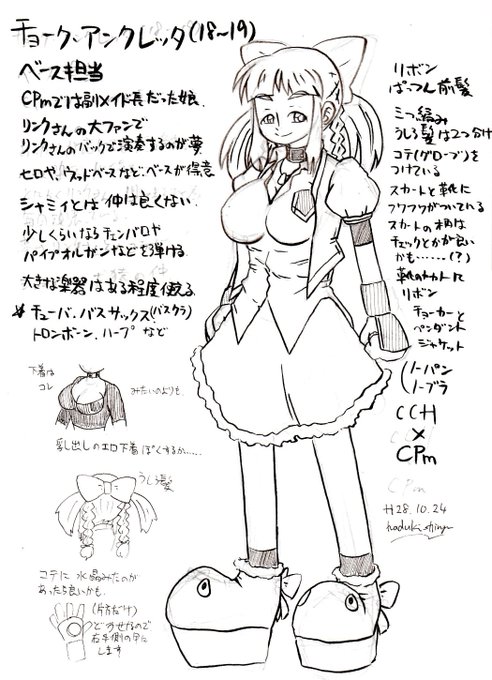 チョーク、アンクレッタ(18~19)
ベース担当
CPmでは副メイド長だった娘、
リンクさんの大ファンで
リンクさんのバックで演奏するのが夢
セロや、ウッドベースなど、ベースが得意
シャミィとは仲は良くない
少しくらいなるチェンバロや
パイプオルガンなどを弾ける
大きな楽器はある程度使える
※チューバ、バスサックス(バスクラ)
トロンボーン、ハープなど
下着は
コレ
みたいのよりも
乳出しのエロ下着ぽくするか……
うしろ髪
コテに水晶みたのが
あったら良いかも、
(片方だけ)
どのせるので
右手側の甲に
します
リボン
ぱっつん前髪
三つ編み
うしろ髪は2つ分け
コテ(グローブ)を
つけている
スカートと靴に
フワフワがついている
スカートの柄は
チェックとかが良い
かも……(?)
靴のカカトに
リボン
チョーカーと
ペンダント
ジャケット
ノーパン
ノーブラ
CCH
×
CPm
CPm
H28.10.24